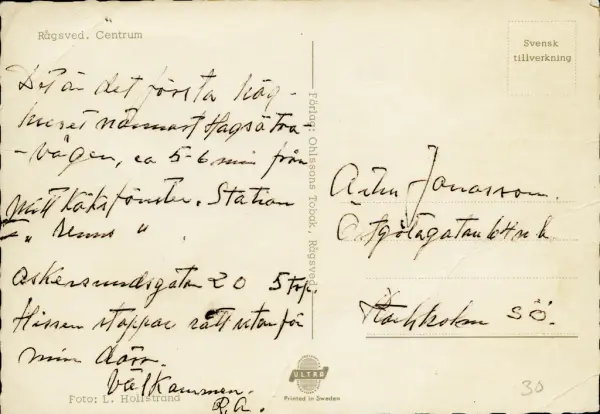 Rågsved. Centrum
Det är det första hög-
huset närmast Hagsätra-
-vägen, ca 5-6 min från
mitt köksfönster. Station
" "
Askersundsgatan 20 5 trp.
Hissen stoppar rätt utanför
min dörr.
Välkommen.
R.A.
Foto: L. Hollstrand
Förlag: Ohlssons Tobak, Rågsved.
ULTRA
Printed in Sweden
Svensk
tillverkning
Jonasson.
Östgötagatan 64
Stockholm SÖ.
30